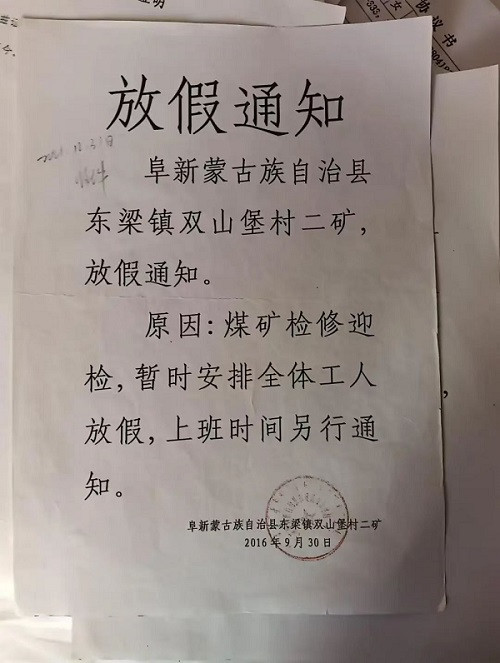 协议书
放假通知
12.31日
阜新蒙古族自治县
东梁镇双山堡村二矿，
放假通知。
原因：煤矿检修迎
检，暂时安排全体工人
放假，上班时间另行通
知。
阜新蒙古族自治县东梁镇双山堡村二矿
2016年9月30日